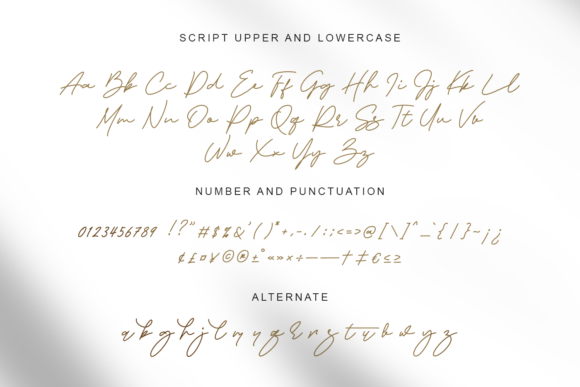 SCRIPT UPPER AND LOWERCASE
Aa Bb Cc Dd Ee Ff Gg Hh Ii Jj Kk Ll
Mm Nn Oo Pp Qq Rr Ss Tt Uu Vv
Ww Xx Yy Zz
NUMBER AND PUNCTUATION
0123456789 !?"#$%&'()*+,-./:;<=>@[\]^_`{|}~¡¿
¢£¤¥©®±°«»×÷–—†‡€≤≥
ALTERNATE
a b g h j l m y q r n z t u b w y z